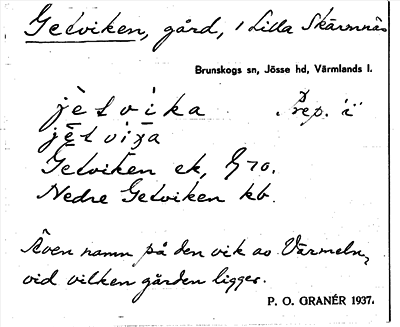 Getviken, gård, i Lilla Skärmnäs
Brunskogs sn, Jösse hd, Värmlands l.
jètvika Prep. i
jètviga
Getviken ek, G 70.
Nedre Getviken kb.
Även namn på den vik av Värmeln,
vid vilken gården ligger.
P. O. GRANÉR 1937.